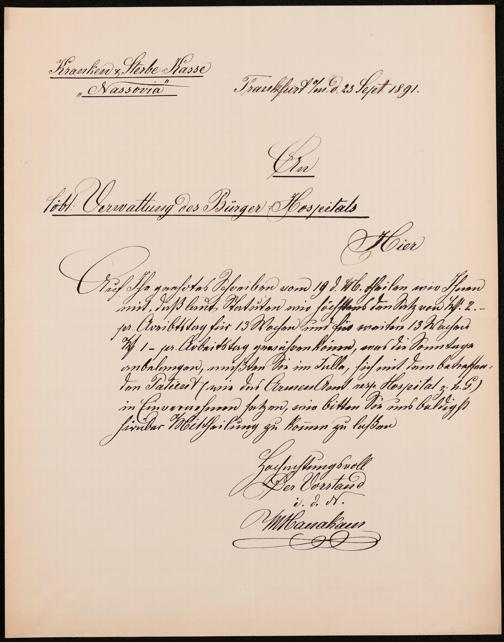 Kranken & Sterbe-Kasse
„Nassovia“
Frankfurt a/m. d. 23 Sept 1891.
An
löbl. Verwaltung des Bürger-Hospitals
Hier
Auf Ihr geehrtes Schreiben vom 19 d. M. theilen wir Ihnen
mit, daß laut Statuten wir höchstens den Satz von M. 2.–
pr. Arbeitstag für 13 Wochen und für weitere 13 Wochen
M 1– pr. Arbeitstag gewähren können, was die Sonntage
anbelangen, müßten Sie im Falle, sich mit dem betreffen-
den Patient (wie das Armen Amt resp. Hospital z. h. G.)
in Einvernehmen setzen, wir bitten Sie uns baldigst
hierüber Mittheilung zu kommen zu laßen
Hochachtungsvoll
Der Vorstand
i. d. N.